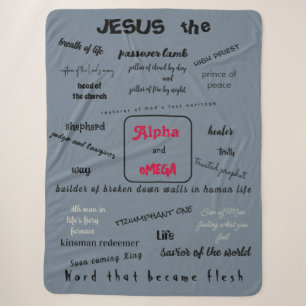 JESUS the
breath of life
passover lamb
HIGH PRIEST
captain of the Lord's army
pillar of cloud by day
and
pillar of fire by night
prince of
peace
head of
the church
restorer of God's lost heritage
shepherd
Alpha
and
OMEGA
healer
judge and lawgiver
truth
way
trusted prophet
builder of broken down walls in human life
4th man in
life's fiery
furnace
TRIUMPHANT ONE
Son of Man
feeling what you
feel
kinsman redeemer
Life
savior of the world
Soon coming King
Word that became flesh